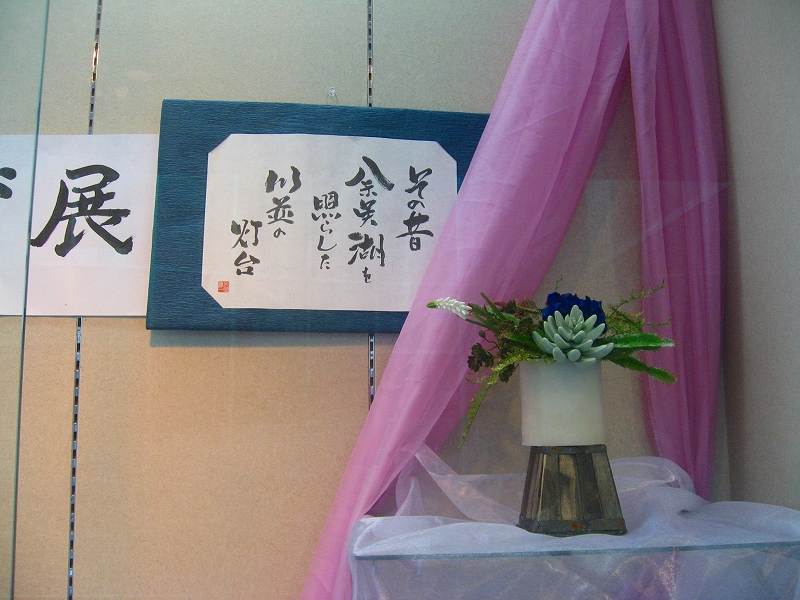 展
その昔
余呉湖を
照らした
川並の
灯台